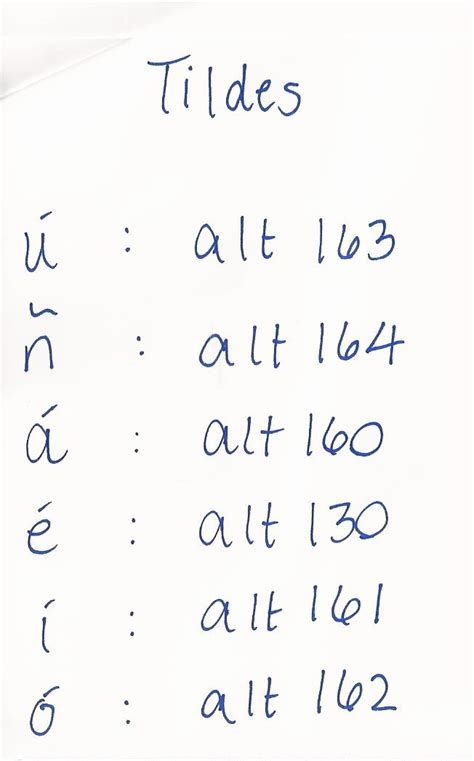 Tildes
ú : alt 163
ñ : alt 164
á : alt 160
é : alt 130
í : alt 161
ó : alt 162